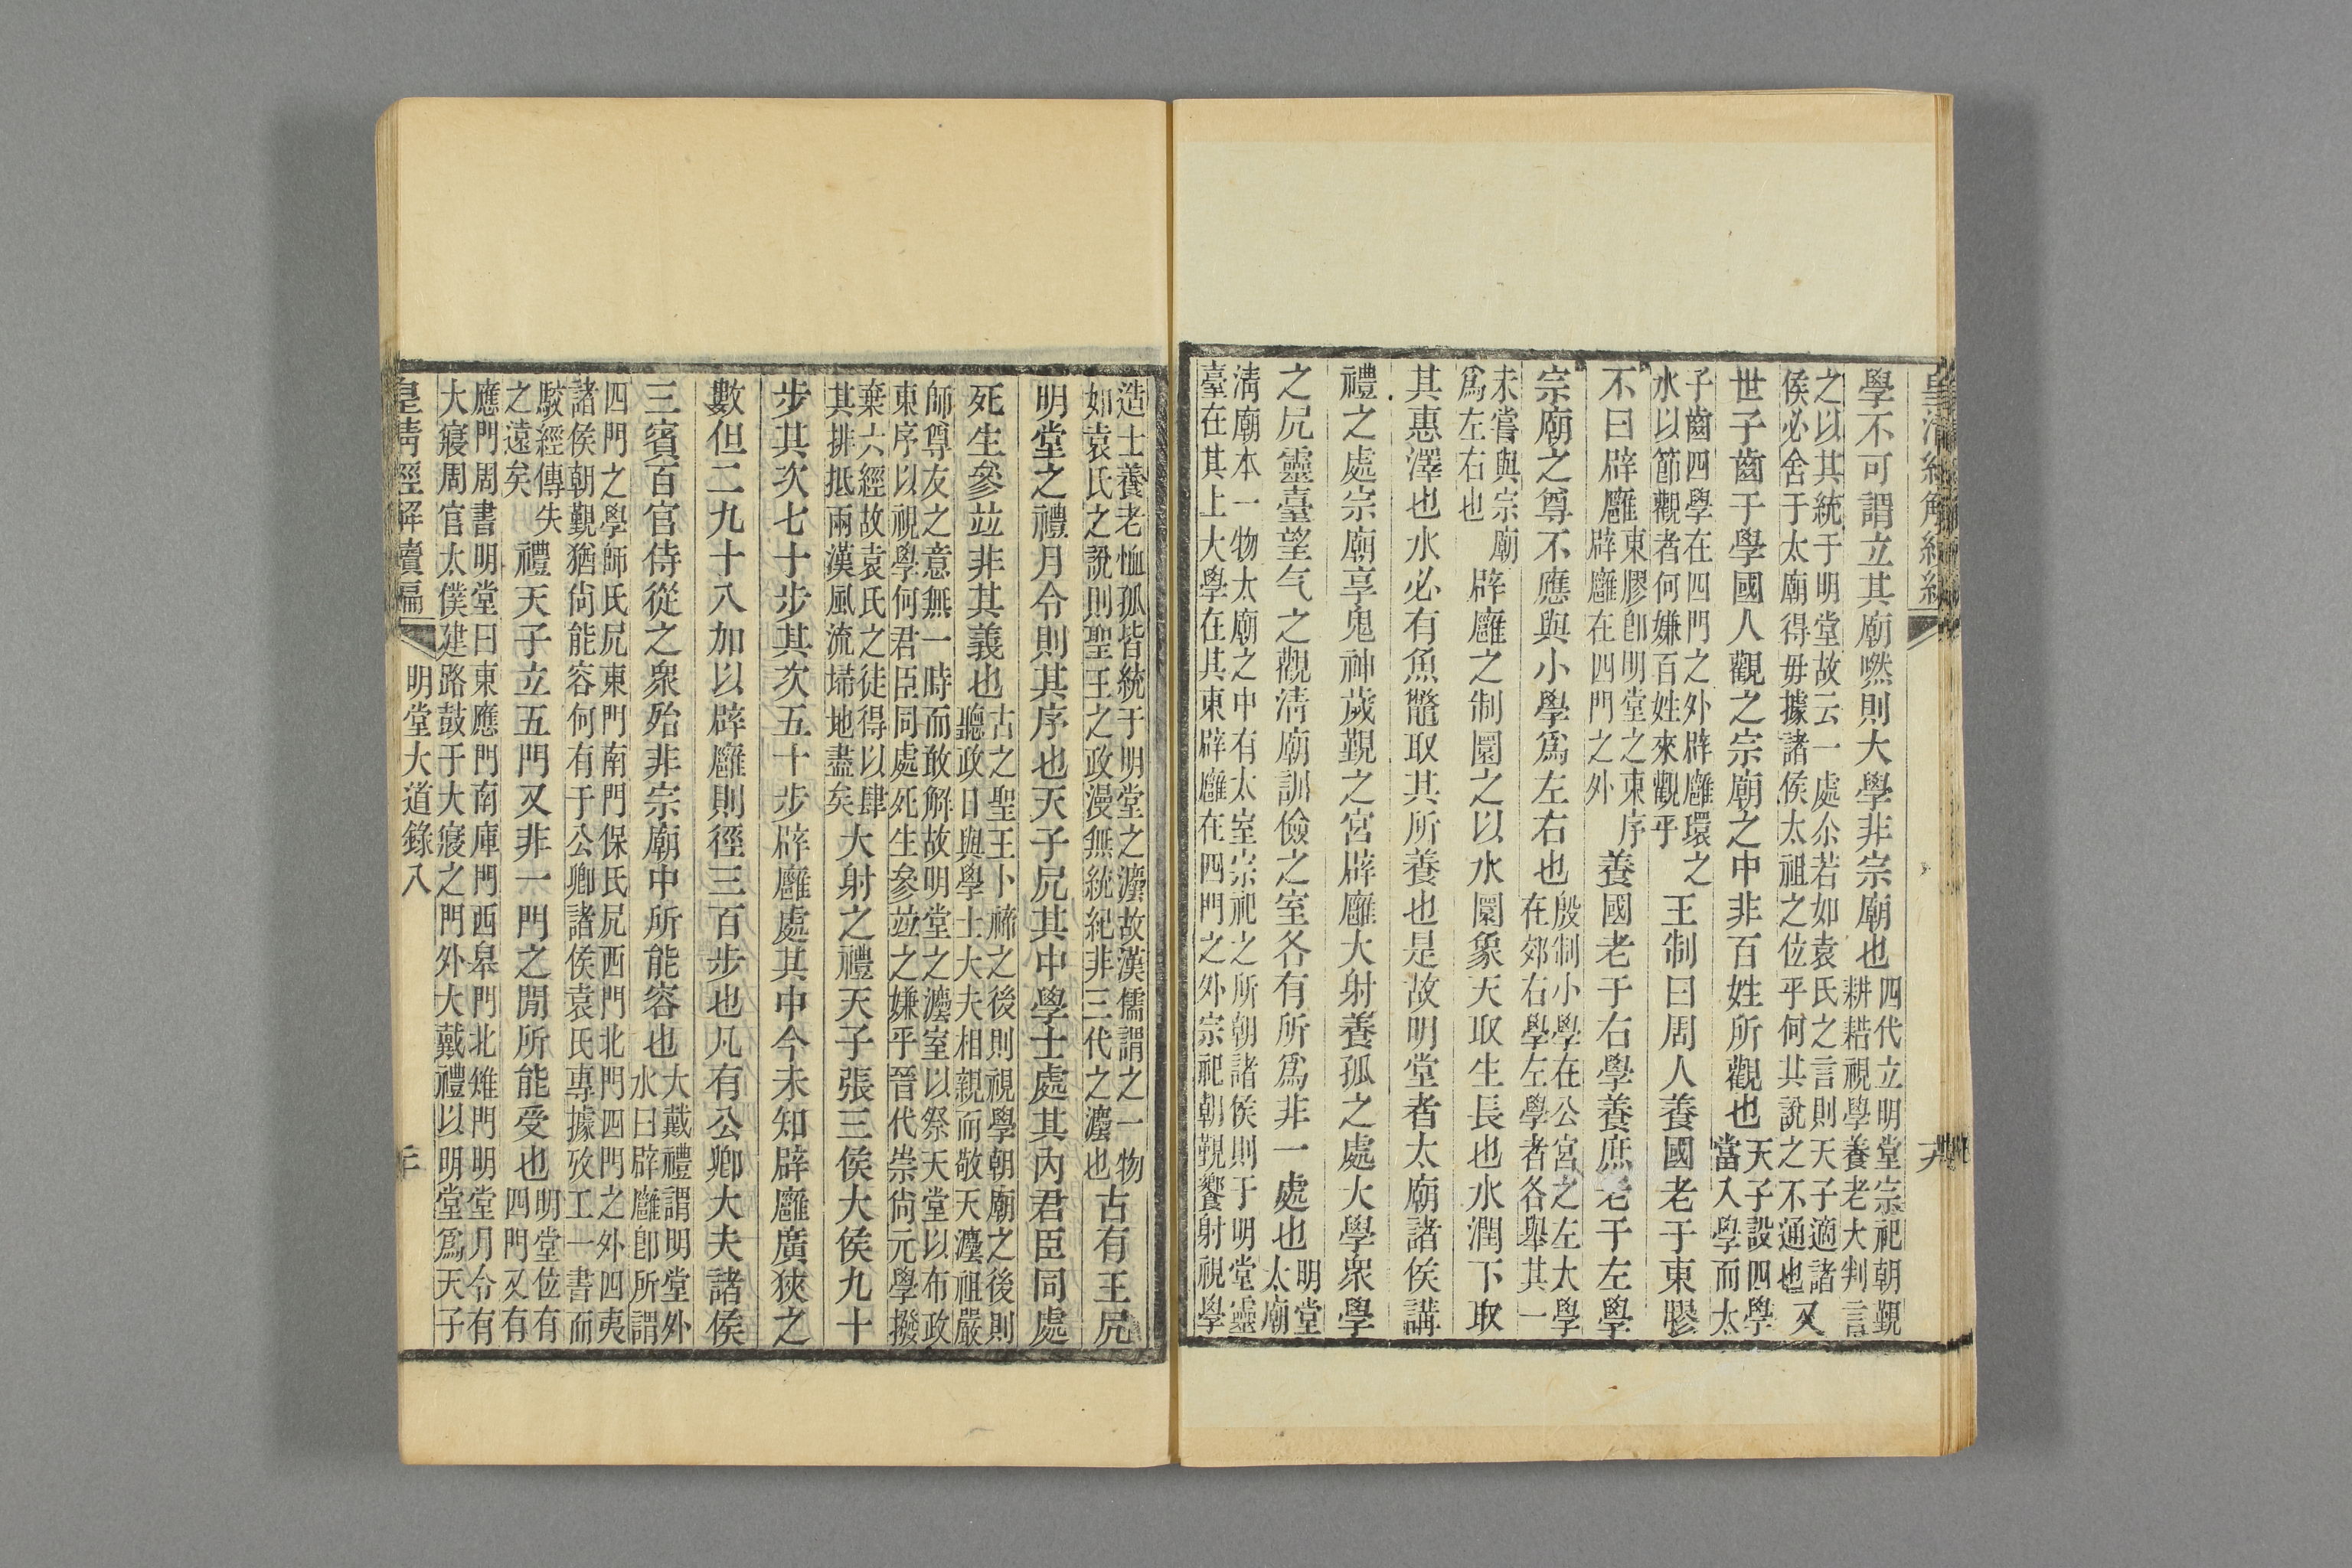 皇清經解續編
學不可謂立其廟嘫則大學非宗廟也四代立明堂宗祀朝覲
耕耤視學養老大判言
之以其統于明堂故云一處尒若如袁氏之言則天子適諸
侯必舍于太廟得毋據諸侯太祖之位乎何其說之不通也又
世子齒于學國人觀之宗廟之中非百姓所觀也天子設四學
當入學而太
子齒四學在四門之外辟廱環之
水以節觀者何嫌百姓來觀乎王制曰周人養國老于東膠
不曰辟廱東膠卽明堂之東序
辟廱在四門之外養國老于右學養庶老于左學
宗廟之尊不應與小學爲左右也殷制小學在公宮之左大學
在郊右學左學者各舉其一
未嘗與宗廟
爲左右也辟廱之制圜之以水圜象天取生長也水潤下取
其惠澤也水必有魚鼈取其所養也是故明堂者太廟諸侯講
禮之處宗廟享鬼神歲覲之宮辟廱大射養孤之處大學眾學
之凥靈臺望气之觀清廟訓儉之室各有所爲非一處也明堂
太廟
清廟本一物太廟之中有太室宗祀之所朝諸侯則于明堂靈
臺在其上大學在其東辟廱在四門之外宗祀朝覲饗射視學
造士養老恤孤皆統于明堂之灋故漢儒謂之一物
如袁氏之說則聖王之政漫無統紀非三代之灋也古有王凥
明堂之禮月令則其序也天子凥其中學士處其內君臣同處
死生參竝非其義也古之聖王卜禘之後則視學朝廟之後則
聽政日與學士大夫相親而敬天灋祖嚴
師尊友之意無一時而敢解故明堂之灋室以祭天堂以布政
東序以視學何君臣同處死生參竝之嫌乎晉代崇尙元學撥
棄六經故袁氏之徒得以肆
其排抵兩漢風流埽地盡矣大射之禮天子張三侯大侯九十
步其次七十步其次五十步辟廱處其中今未知辟廱廣狹之
數但二九十八加以辟廱則徑三百步也凡有公卿大夫諸侯
三賓百官侍從之眾殆非宗廟中所能容也大戴禮謂明堂外
水曰辟廱卽所謂
四門之學師氏凥東門南門保氏凥西門北門四門之外四夷
諸侯朝覲猶尙能容何有于公卿諸侯袁氏專據攷工一書而
駁經傳失
之遠矣禮天子立五門又非一門之閒所能受也明堂位有
四門又有
應門周書明堂曰東應門南庫門西皋門北雉門明堂月令有
大寢周官太僕建路鼓于大寢之門外大戴禮以明堂爲天子
皇清經解續編
明堂大道錄八